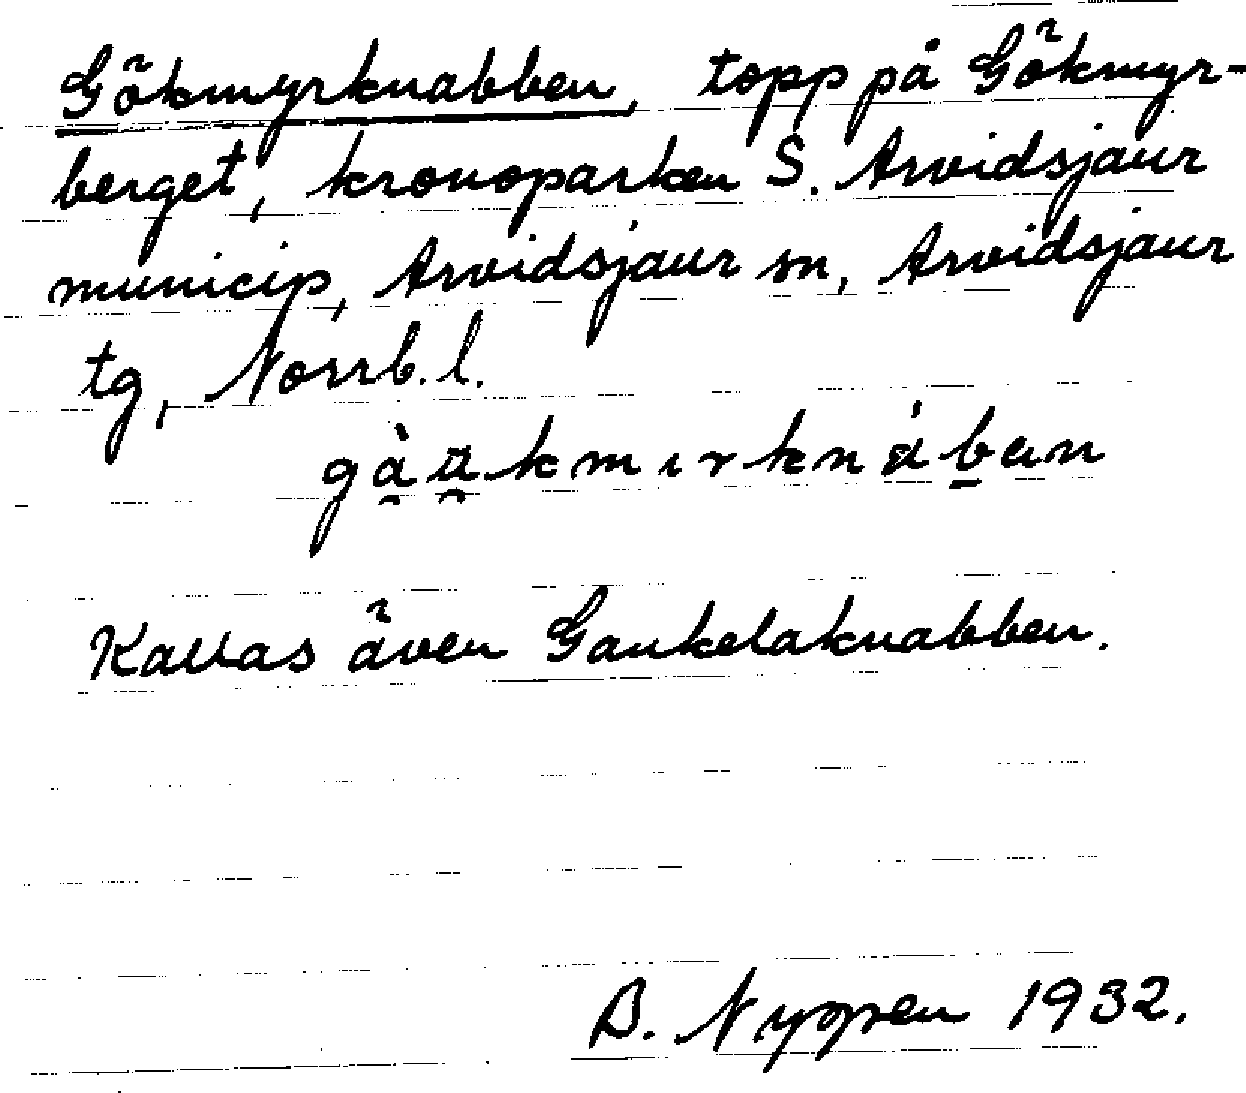 Gökmyrknabben, topp på Gökmyr-
berget, kronoparken S. Arvidsjaur
municip, Arvidsjaur sn, Arvidsjaur
tg, Norrb. l.
Kallas även Gaukelaknabben.
B. Nyppen 1932.